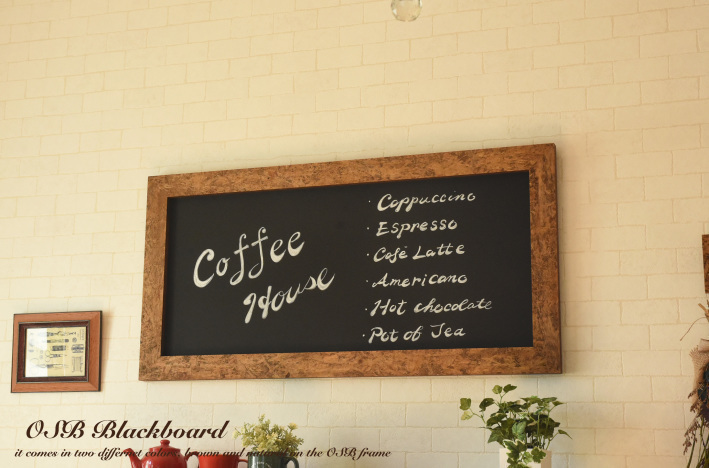 Coffee
House
· Coppuccino
· Espresso
· Café Latte
· Americano
· Hot chocolate
· Pot of Tea
OSB Blackboard
it comes in two differnet colors, brown and natural on the OSB frame